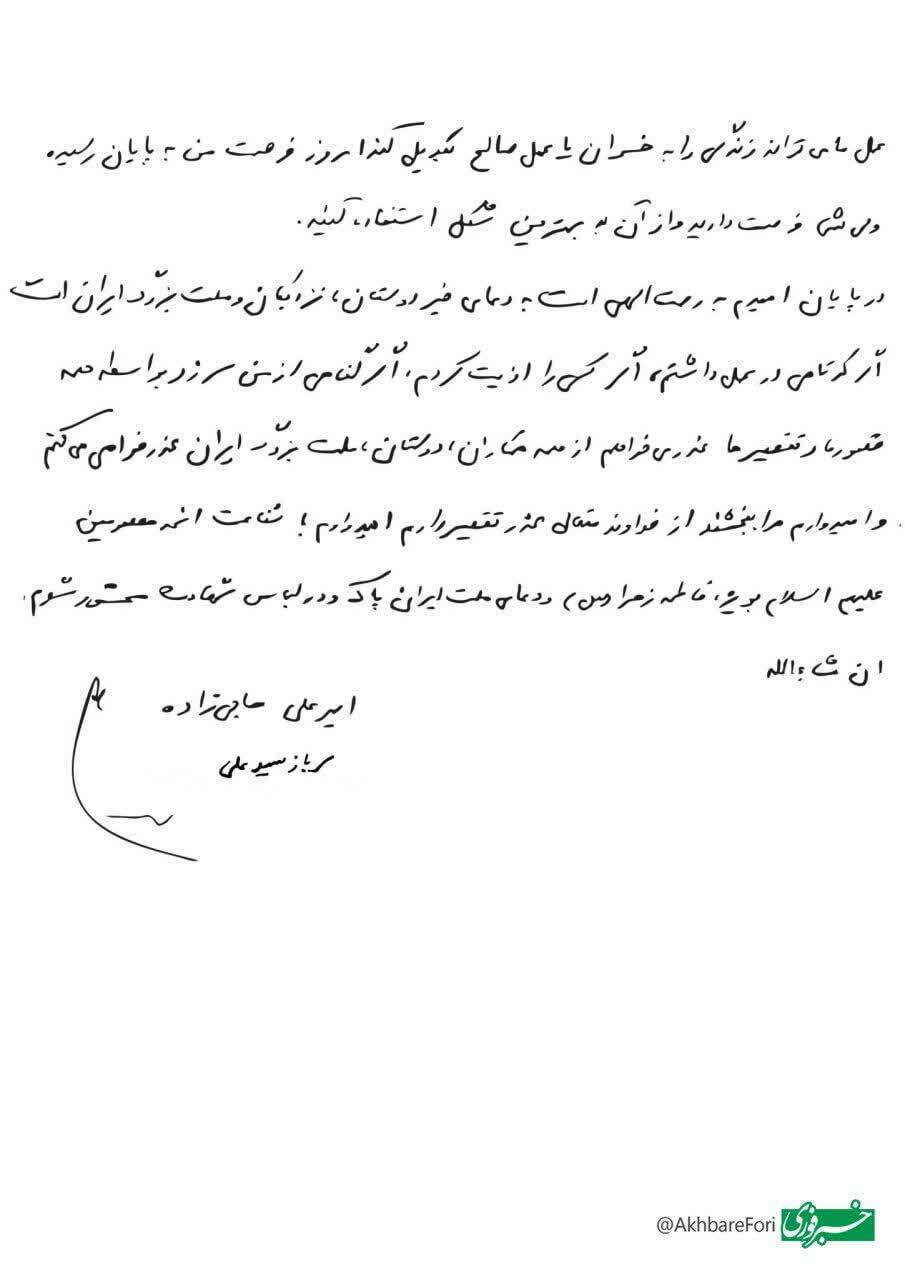 عمل ما می تواند زندگی را به خسران یا عمل صالح تبدیل کند امروز فرصت من به پایان رسیده
ولی شما فرصت دارید و از آن به بهترین شکل استفاده کنید.
در پایان امیدم به رحمت الهی است به دعای خیر دوستان، نزدیکان و ملت بزرگ ایران است
اگر کوتاهی در عمل داشتم، اگر کسی را اذیت کردم، اگر گناهی از من سر زد بواسطه همه
قصورها و تقصیرها عذر می خواهم از همه همکاران، دوستان، ملت بزرگ ایران عذرخواهی می کنم
و امیدوارم مرا ببخشند از خداوند متعال عذر تقصیر دارم امیدوارم با شفاعت ائمه معصومین
علیهم السلام بویژه فاطمه زهرا (س) و دعای ملت ایران پاک و در لباس شهادت محشور شوم.
ان شاءالله
امیرعلی حاجی زاده
سرباز سید علی
@AkhbareFori
خبرفوری